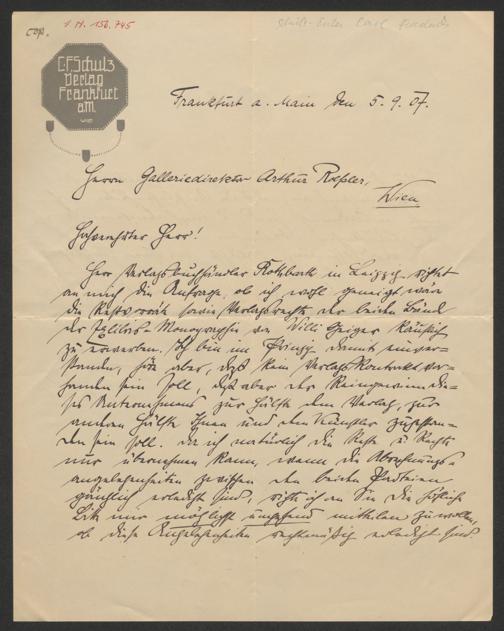 cop.
I.N. 156.745
C.F. Schulz
Verlag
Frankfurt
a/M
Frankfurt a. Main den 5. 9. 07.
Herrn Galleriedirektor Arthur Roeßler,
Wien
Hochverehrter Herr!
Herr Verlagsbuchhändler Rothbarth in Leipzig richtet
an mich die Anfrage, ob ich wohl geneigt wäre
die Restvorräte sowie Verlagsrechte der beiden Bände
der Monographie von Willi Geiger käuflich
zu erwerben. Ich bin im Prinzip damit einver-
standen, höre aber, daß kein Verlagskontrakt vor-
handen sein soll, daß aber der Reingewinn die-
ses Unternehmens zur Hälfte dem Verlag, zur
anderen Hälfte Ihnen und dem Künstler zustehen
soll. Da ich natürlich die Reste u. Rechte
nur übernehmen kann, wenn die Abrechnungs-
angelegenheiten zwischen den beiden Parteien
gänzlich erledigt sind, richte ich an Sie die höfliche
Bitte mir möglichst umgehend mitteilen zu wollen,
ob diese Angelegenheiten rechtmäßig erledigt sind